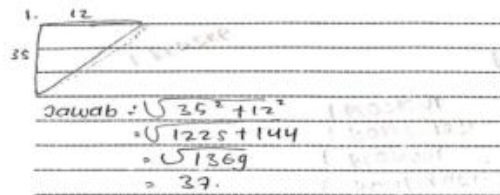 1. 12
35
Jawab : √35² + 12²
= √1225 + 144
= √1369
= 37.